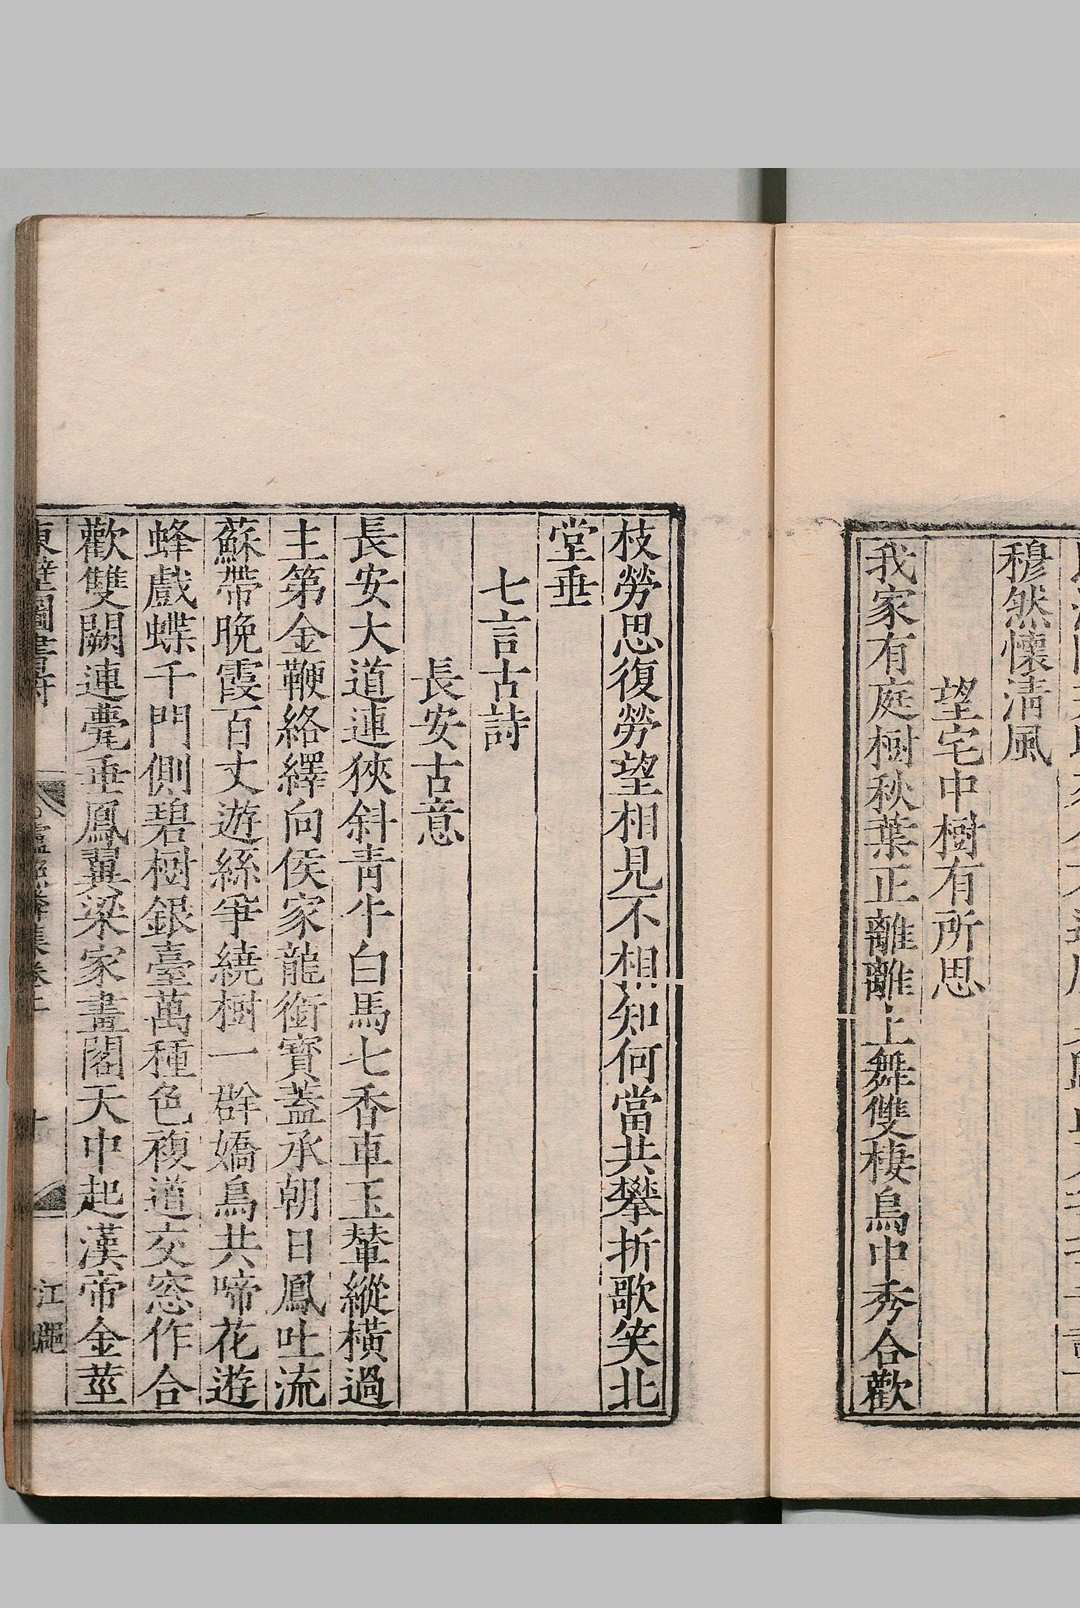 穆然懷清風
望宅中樹有所思
我家有庭樹秋葉正離離上舞雙棲鳥中秀合歡
枝勞思復勞望相見不相知何當共攀折歌笑北
堂垂
七言古詩
長安古意
長安大道連狹斜青牛白馬七香車玉輦縱橫過
主第金鞭絡繹向侯家龍銜寶蓋承朝日鳳吐流
蘇帶晚霞百丈遊絲爭繞樹一群嬌鳥共啼花遊
蜂戲蝶千門側碧樹銀臺萬種色複道交窓作合
歡雙闕連甍垂鳳翼梁家畫閣天中起漢帝金莖